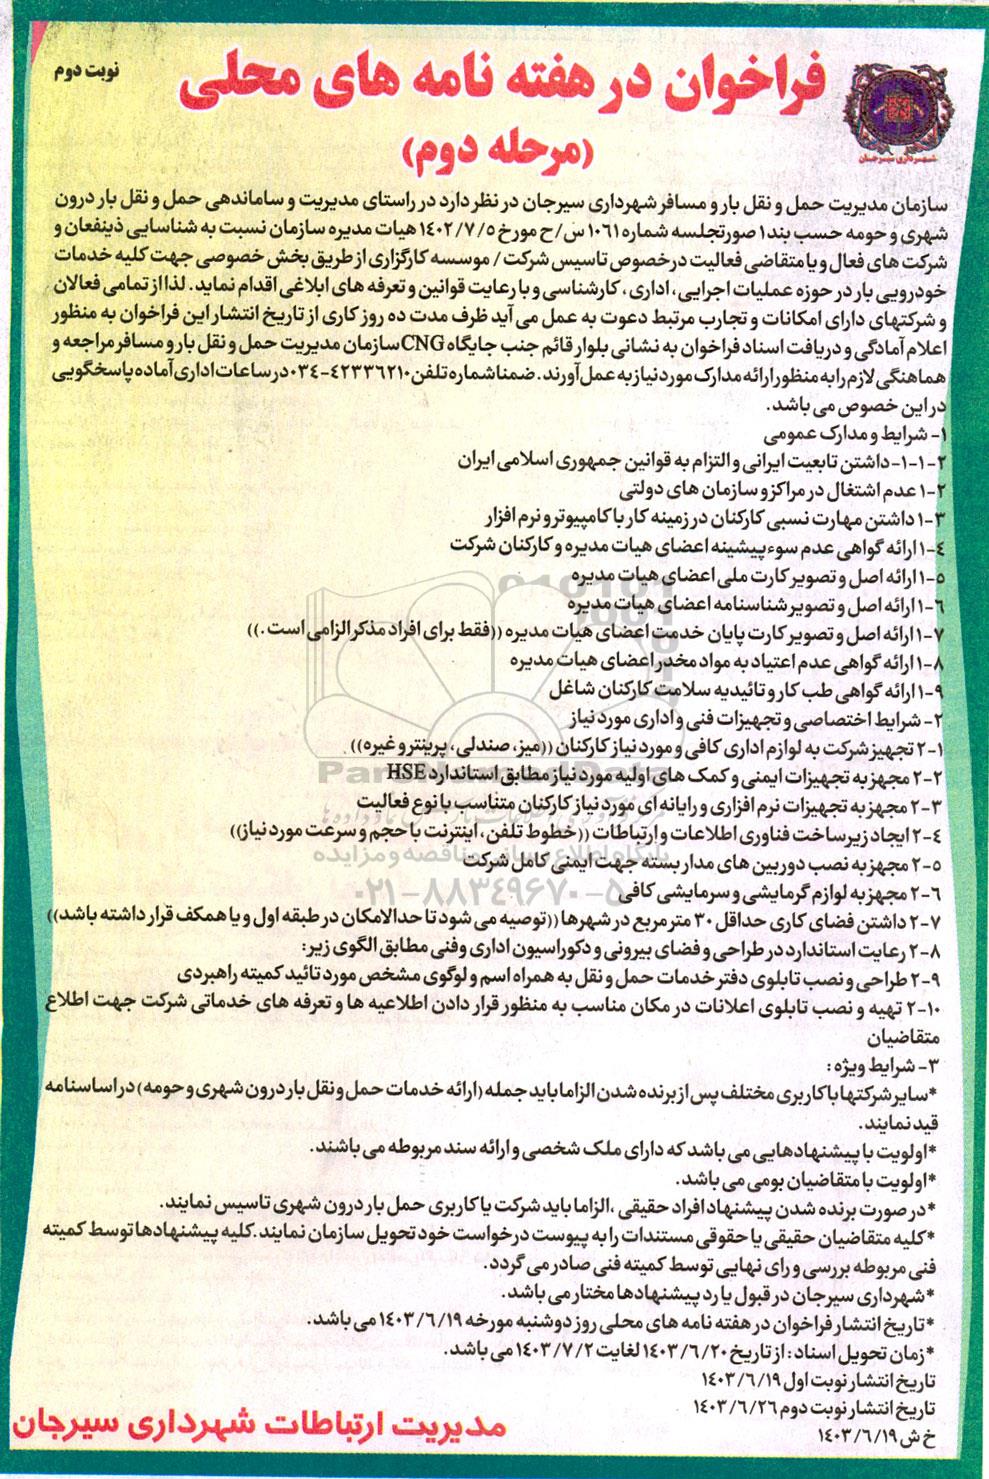 نوبت دوم
فراخوان در هفته نامه های محلی
(مرحله دوم)
شهرداری سیرجان
سازمان مدیریت حمل و نقل بار و مسافر شهرداری سیرجان در نظر دارد در راستای مدیریت و ساماندهی حمل و نقل بار درون
شهری و حومه حسب بند۱ صورتجلسه شماره ۱۰۶۱ س/ح مورخ ۱۴۰۲/۷/۵ هیات مدیره سازمان نسبت به شناسایی ذینفعان و
شرکت های فعال و یا متقاضی فعالیت در خصوص تاسیس شرکت / موسسه کارگزاری از طریق بخش خصوصی جهت کلیه خدمات
خودرویی بار در حوزه عملیات اجرایی، اداری، کارشناسی و با رعایت قوانین و تعرفه های ابلاغی اقدام نماید. لذا از تمامی فعالان
و شرکتهای دارای امکانات و تجارب مرتبط دعوت به عمل می آید ظرف مدت ده روز کاری از تاریخ انتشار این فراخوان به منظور
اعلام آمادگی و دریافت اسناد فراخوان به نشانی بلوار قائم جنب جایگاه CNG سازمان مدیریت حمل و نقل بار و مسافر مراجعه و
هماهنگی لازم را به منظور ارائه مدارک مورد نیاز به عمل آورند. ضمنا شماره تلفن ۴۲۳۳۶۲۱۰-۰۳۴ در ساعات اداری آماده پاسخگویی
در این خصوص می باشد.
۱- شرایط و مدارک عمومی
۲-۱-۱-داشتن تابعیت ایرانی و التزام به قوانین جمهوری اسلامی ایران
۱-۲ عدم اشتغال در مراکز و سازمان های دولتی
۱-۳ داشتن مهارت نسبی کارکنان در زمینه کار با کامپیوتر و نرم افزار
۱-۴ ارائه گواهی عدم سوء پیشینه اعضای هیات مدیره و کارکنان شرکت
۱-۵ ارائه اصل و تصویر کارت ملی اعضای هیات مدیره
۱-۶ ارائه اصل و تصویر شناسنامه اعضای هیات مدیره
۱-۷ ارائه اصل و تصویر کارت پایان خدمت اعضای هیات مدیره ((فقط برای افراد مذکر الزامی است.))
۱-۸ ارائه گواهی عدم اعتیاد به مواد مخدر اعضای هیات مدیره
۱-۹ ارائه گواهی طب کار و تائیدیه سلامت کارکنان شاغل
۲- شرایط اختصاصی و تجهیزات فنی و اداری مورد نیاز
۲-۱ تجهیز شرکت به لوازم اداری کافی و مورد نیاز کارکنان ((میز، صندلی، پرینتر و غیره)).
۲-۲ مجهز به تجهیزات ایمنی و کمک های اولیه مورد نیاز مطابق استاندارد HSE
۲-۳ مجهز به تجهیزات نرم افزاری و رایانه ای مورد نیاز کارکنان متناسب با نوع فعالیت
۲-۴ ایجاد زیرساخت فناوری اطلاعات و ارتباطات ((خطوط تلفن، اینترنت با حجم و سرعت مورد نیاز))
پایگاه اطلاع رسانی مناقصه و مزایده
۲-۵ مجهز به نصب دوربین های مداربسته جهت ایمنی کامل شرکت
۰۲۱-۸۸۳۴۹۶۷۰-۵
۲-۶ مجهز به لوازم گرمایشی و سرمایشی کافی
۲-۷ داشتن فضای کاری حداقل ۳۰ متر مربع در شهرها ((توصیه می شود تا حدالامکان در طبقه اول و یا همکف قرار داشته باشد))
۲-۸ رعایت استاندارد در طراحی و فضای بیرونی و دکوراسیون اداری وفنی مطابق الگوی زیر:
۲-۹ طراحی و نصب تابلوی دفتر خدمات حمل و نقل به همراه اسم و لوگوی مشخص مورد تائید کمیته راهبردی
۲-۱۰ تهیه و نصب تابلوی اعلانات در مکان مناسب به منظور قرار دادن اطلاعیه ها و تعرفه های خدماتی شرکت جهت اطلاع
متقاضیان
۳- شرایط ویژه:
*سایر شرکتها با کاربری مختلف پس از برنده شدن الزاما باید جمله (ارائه خدمات حمل و نقل بار درون شهری و حومه) در اساسنامه
قید نمایند.
*اولویت با پیشنهادهایی می باشد که دارای ملک شخصی و ارائه سند مربوطه می باشند.
*اولویت با متقاضیان بومی می باشد.
*در صورت برنده شدن پیشنهاد افراد حقیقی ،الزاما باید شرکت با کاربری حمل بار درون شهری تاسیس نمایند.
*کلیه متقاضیان حقیقی یا حقوقی مستندات را به پیوست درخواست خود تحویل سازمان نمایند.کلیه پیشنهادها توسط کمیته
فنی مربوطه بررسی و رای نهایی توسط کمیته فنی صادر می گردد.
*شهرداری سیرجان در قبول یا رد پیشنهادها مختار می باشد.
*تاریخ انتشار فراخوان در هفته نامه های محلی روز دوشنبه مورخه ۱۴۰۳/۶/۱۹ می باشد.
*زمان تحویل اسناد: از تاریخ ۱۴۰۳/۶/۲۰ لغایت ۱۴۰۳/۷/۲ می باشد.
تاریخ انتشار نوبت اول ۱۴۰۳/۶/۱۹
تاریخ انتشار نوبت دوم ۱۴۰۳/۶/۲۶
خ ش ۱۴۰۳/۶/۱۹
مدیریت ارتباطات شهرداری سیرجان